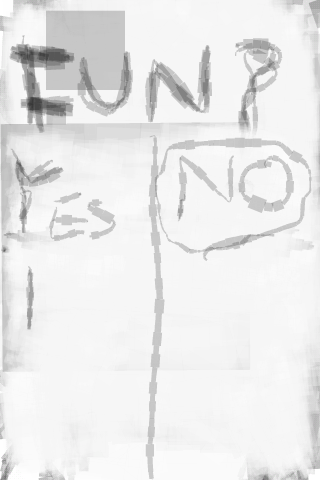 FUN?
YES NO
I